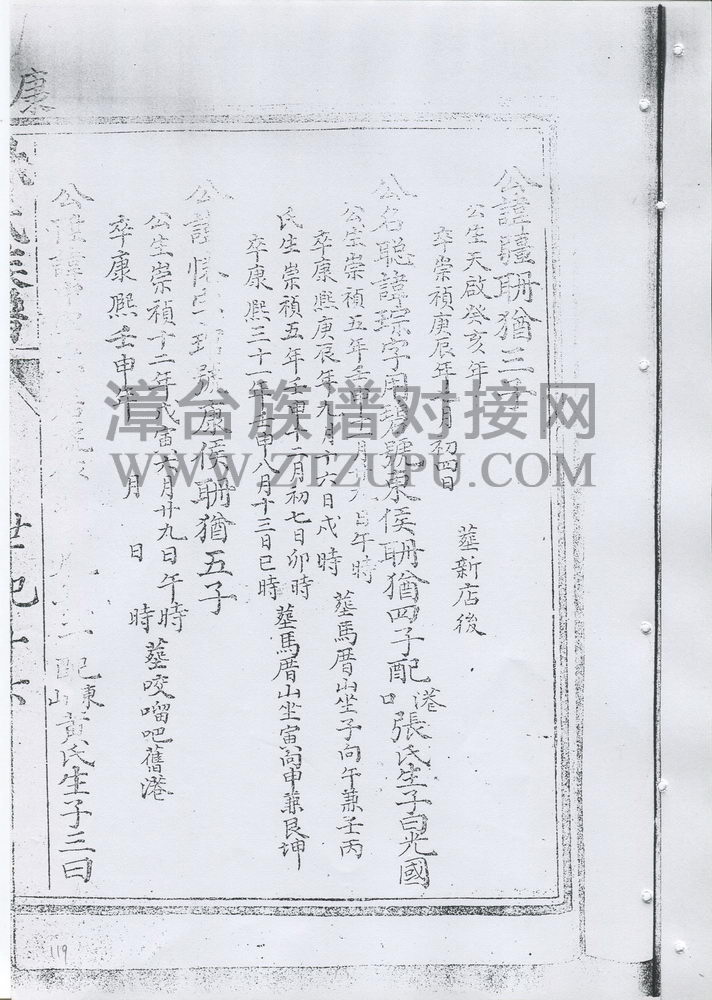 康
公諱疆聃猶三子
公生天啟癸亥年
卒崇禎庚辰年 月初四日 塟新店後
公名聰諱琮字用 號東侯聃猶四子配港口張氏生子曰光國
公生崇禎五年壬申 月 日午時
卒康熙庚辰年九月十六日戌時 塟馬厝山坐子向午兼壬丙
氏生崇禎五年壬申十二月初七日卯時
卒康熙三十一年壬申八月十三日巳時 塟馬厝山坐寅向申兼艮坤
公諱 號康侯聃猶五子
公生崇禎十二年戊寅六月廿九日午時
卒康熙壬申年 月 日 時 塟咬㗰吧舊港
公 諱 配東山黃氏生子三曰
氏族譜
世紀十六
漳台族谱对接网
WWW.ZTZUPU.COM
119